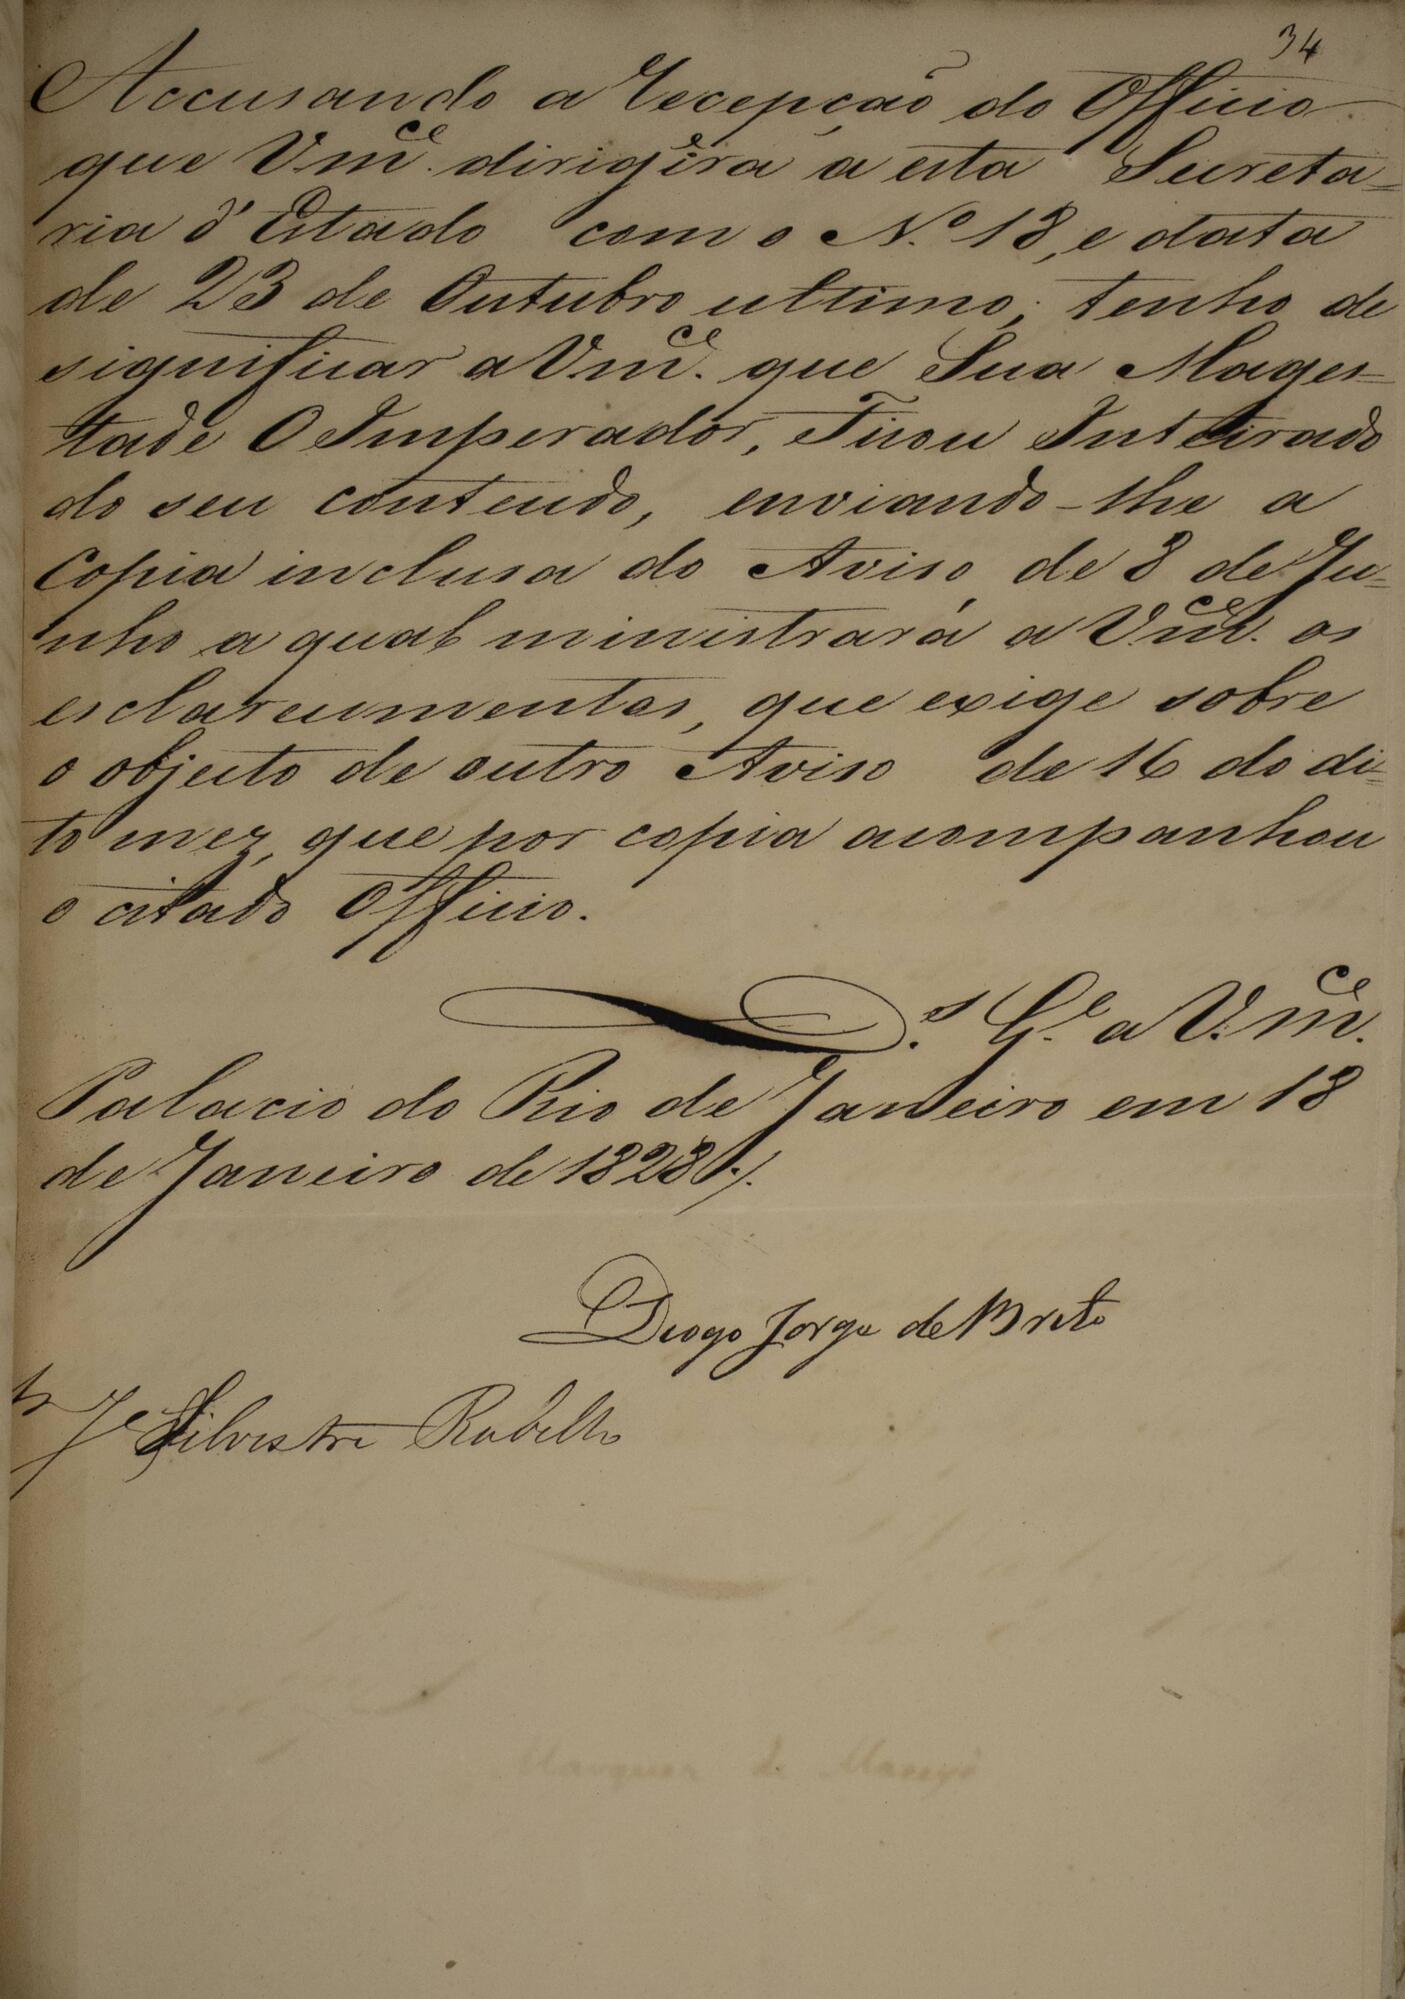 34
Accusando a recepção do Officio
que Vm.ce dirigíra a esta Secreta=
ria d'Estado com o N.º 18, e data
de 23 de Outubro ultimo; tenho de
significar a Vm.ce que Sua Mages=
tade O Imperador, Ficou Inteirado
do seu conteudo, enviando-lhe a
Copia inclusa do Aviso de 8 de Ju=
nho a qual ministrará a Vm.ce os
esclarecimentos, que exige sobre
o objecto de outro Aviso de 16 do di=
to mez, que por copia acompanhou
o citado Officio.
D.s G.e a V.m.ce
Palacio do Rio de Janeiro em 18
de Janeiro de 1828./.
Diogo Jorge de Brito
J.e Silvestre Rebello